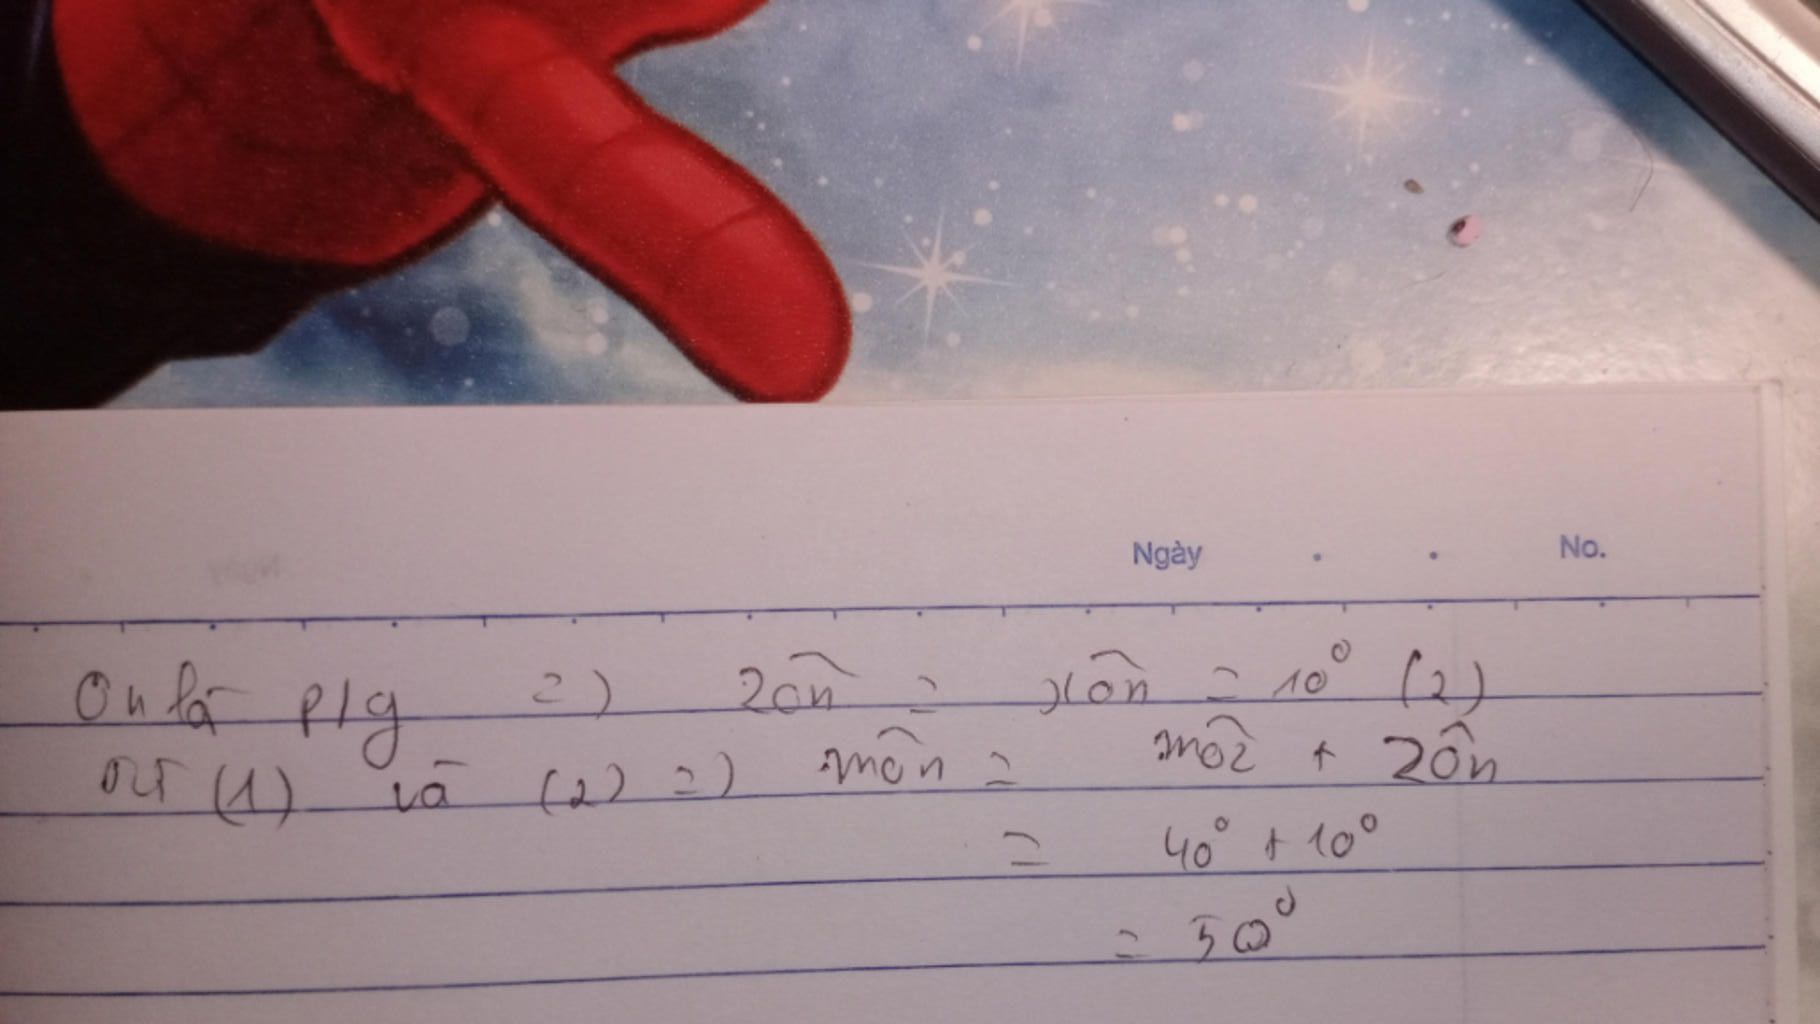 Ngày . . No.
On là p/g => zôn = xôn = 10° (2)
Từ (1) và (2) => môn = môz + zôn
= 40° + 10°
= 50°